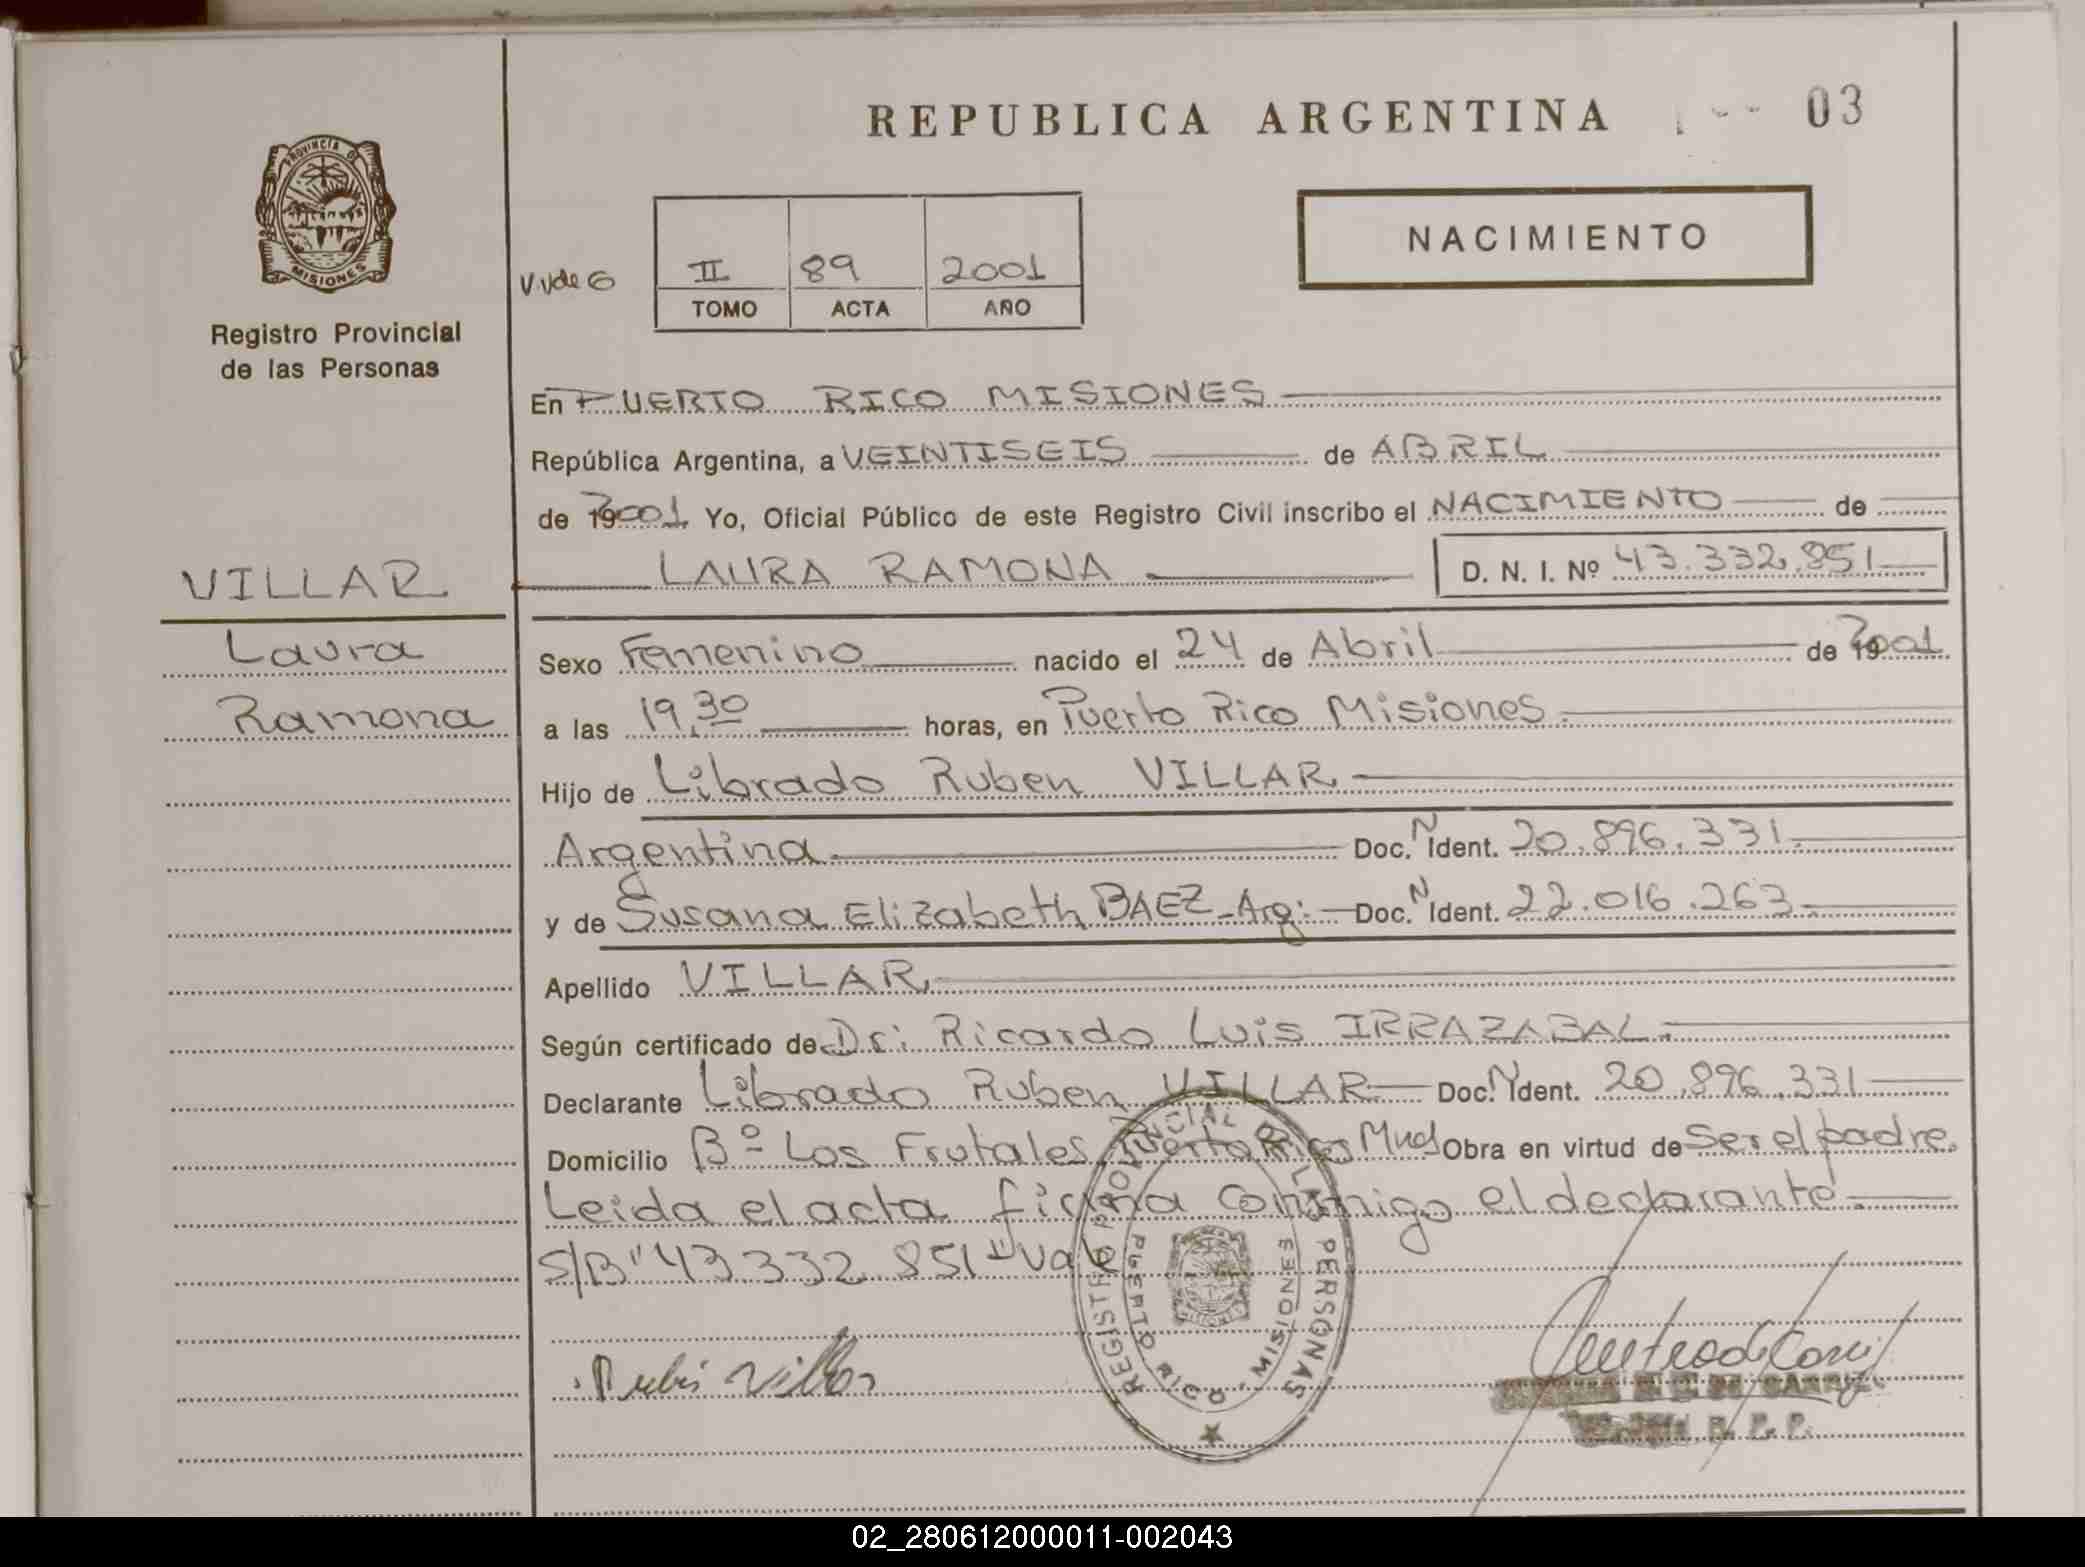 REPUBLICA ARGENTINA
03
PROVINCIA DE
MISIONES
Registro Provincial
de las Personas
NACIMIENTO
II 89 2001
TOMO ACTA AÑO
En PUERTO RICO MISIONES
República Argentina, a VEINTISEIS de ABRIL
de 2001 Yo, Oficial Público de este Registro Civil inscribo el NACIMIENTO de
VILLAR
LAURA RAMONA D. N. I. Nº 43.332.851
Laura
Sexo Femenino nacido el 24 de Abril de 2001
Ramona
a las 19,30 horas, en Puerto Rico Misiones
Hijo de Librado Ruben VILLAR
Argentina Doc. N Ident. 20.896.331
y de Susana Elizabeth BAEZ - Arg: Doc. N Ident. 22.016.263
Apellido VILLAR
Según certificado de Dr: Ricardo Luis IRRAZABAL
Declarante Librado Ruben VILLAR Doc. N Ident. 20.896.331
Domicilio Bº Los Frutales, Puerto Rico Mnes Obra en virtud de Ser el padre
Leida el acta firma conmigo el declarante
S/B "43 332 851" Vale
REGISTRO PROVINCIAL DE LAS PERSONAS
PUERTO RICO - MISIONES
02_280612000011-002043